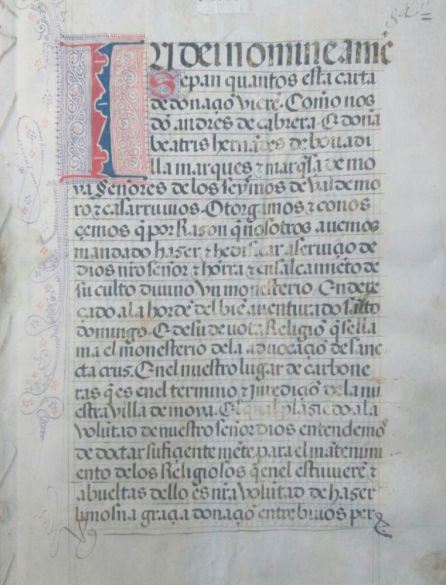 In dei nomine amē
Sepan quantos esta carta
de donaçō vierē. Como nos
dō andres de cabrera. E doña
beatris hernādes de bouadi
lla marques ⁊ marq̄sa de mo
ya Señores de los seysmos de val de mo
ro ⁊ casarruuios. Otorgamos ⁊ conos
çemos q̄ por Rason q̄ nosotros auemos
mandado haser ⁊ hedificar a seruiçio de
dios nr̄o señor ⁊ hōrra ⁊ ensalçamiēto de
su culto diuino Vn monesterio. Endere
çado a la hordē del biē auenturado santo
domingo. E de su deuota Religiō q̄ se lla
ma el monesterio de la aduocaçiō de sanc
ta crus. E en el nuestro lugar de carbone
ras q̄ es en el termino ⁊ juredīçiō de la nu
estra villa de moya. El qual plasiēdo a la
volūtad de nuestro señor dios entendemos
de doctar sufiçiente mēte para el mantenimi
ento de los Religiosos q̄ en el estuuierē ⁊
a bueltas dello es nr̄a volūtad de haser
lymosna graçia donaçiō entre biuos per